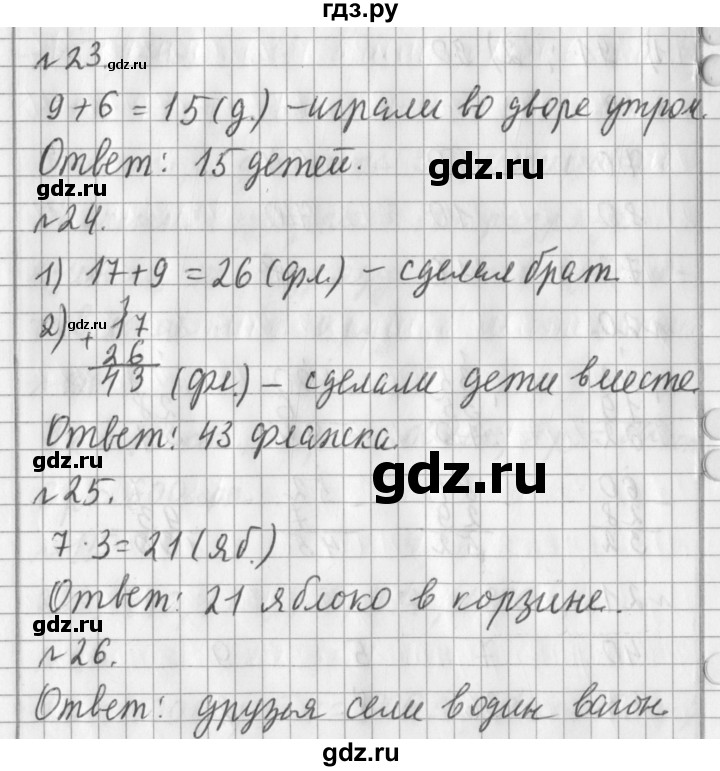 гдз.ру
№23. gdz.ru
9+6=15(д.) – играли во дворе утром.
Ответ: 15 детей.
gdz.ru gdz.ru
№24.
1) 17+9=26 (фл.) – сделал брат.
1
2) gdz.ru + 17
26
43 (фл.) – сделали дети вместе.
Ответ: 43 флажка.
gdz.ru gdz.ru
№25.
7·3=21(яб.)
Ответ: 21 яблоко в корзине.
gdz.ru
№26.
Ответ: друзья сели в один вагон.
gdz.ru